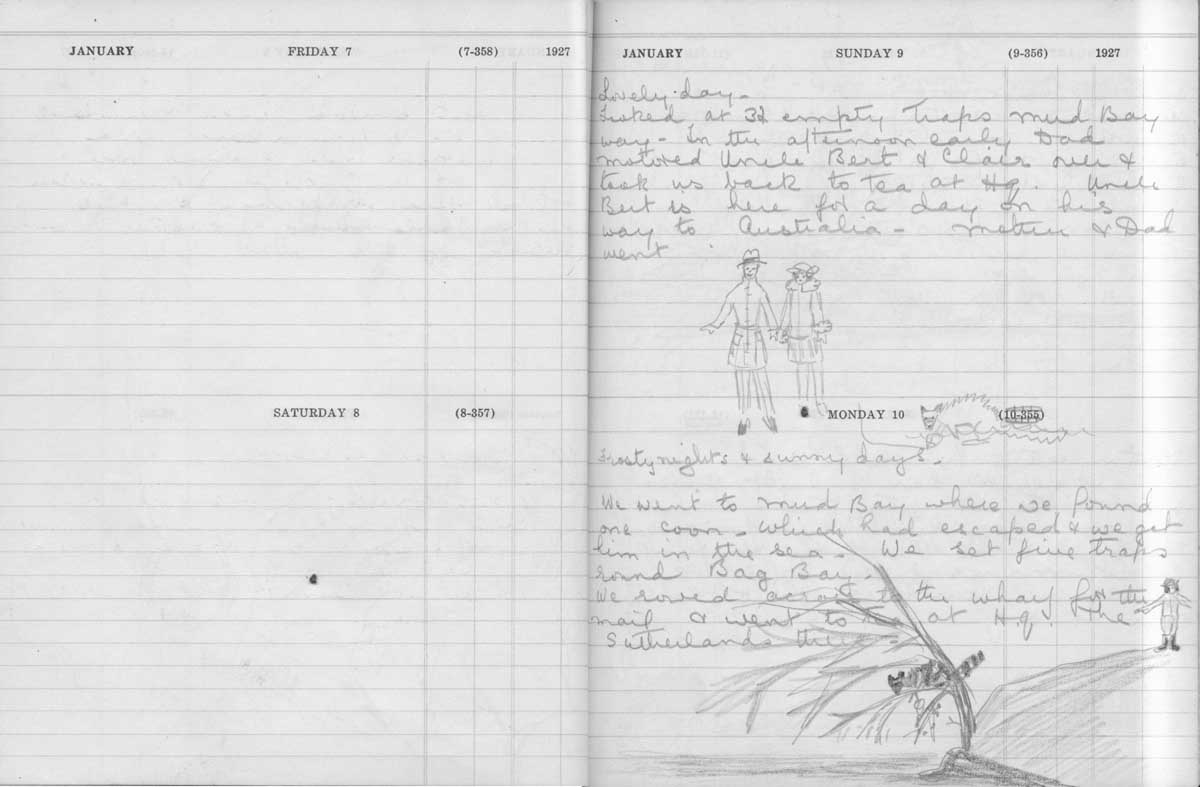 JANUARY FRIDAY 7 (7-358) 1927
SATURDAY 8 (8-357)
JANUARY SUNDAY 9 (9-356) 1927
Lovely day -
Looked at 32 empty Traps Mud Bay
way - In the afternoon early Dad
motored Uncle Bert & Clair over &
took us back to Tea at Hq. Uncle
Bert is here for a day on his
way to Australia - Mother & Dad
went
MONDAY 10 (10-355)
Frosty nights & sunny days -
We went to Mud Bay where we found
one coon - which had escaped & we got
him in the sea - We set five traps
round Bag Bay.
We rowed across to the wharf for the
mail & went to tea at H.q. The
Sutherlands there -